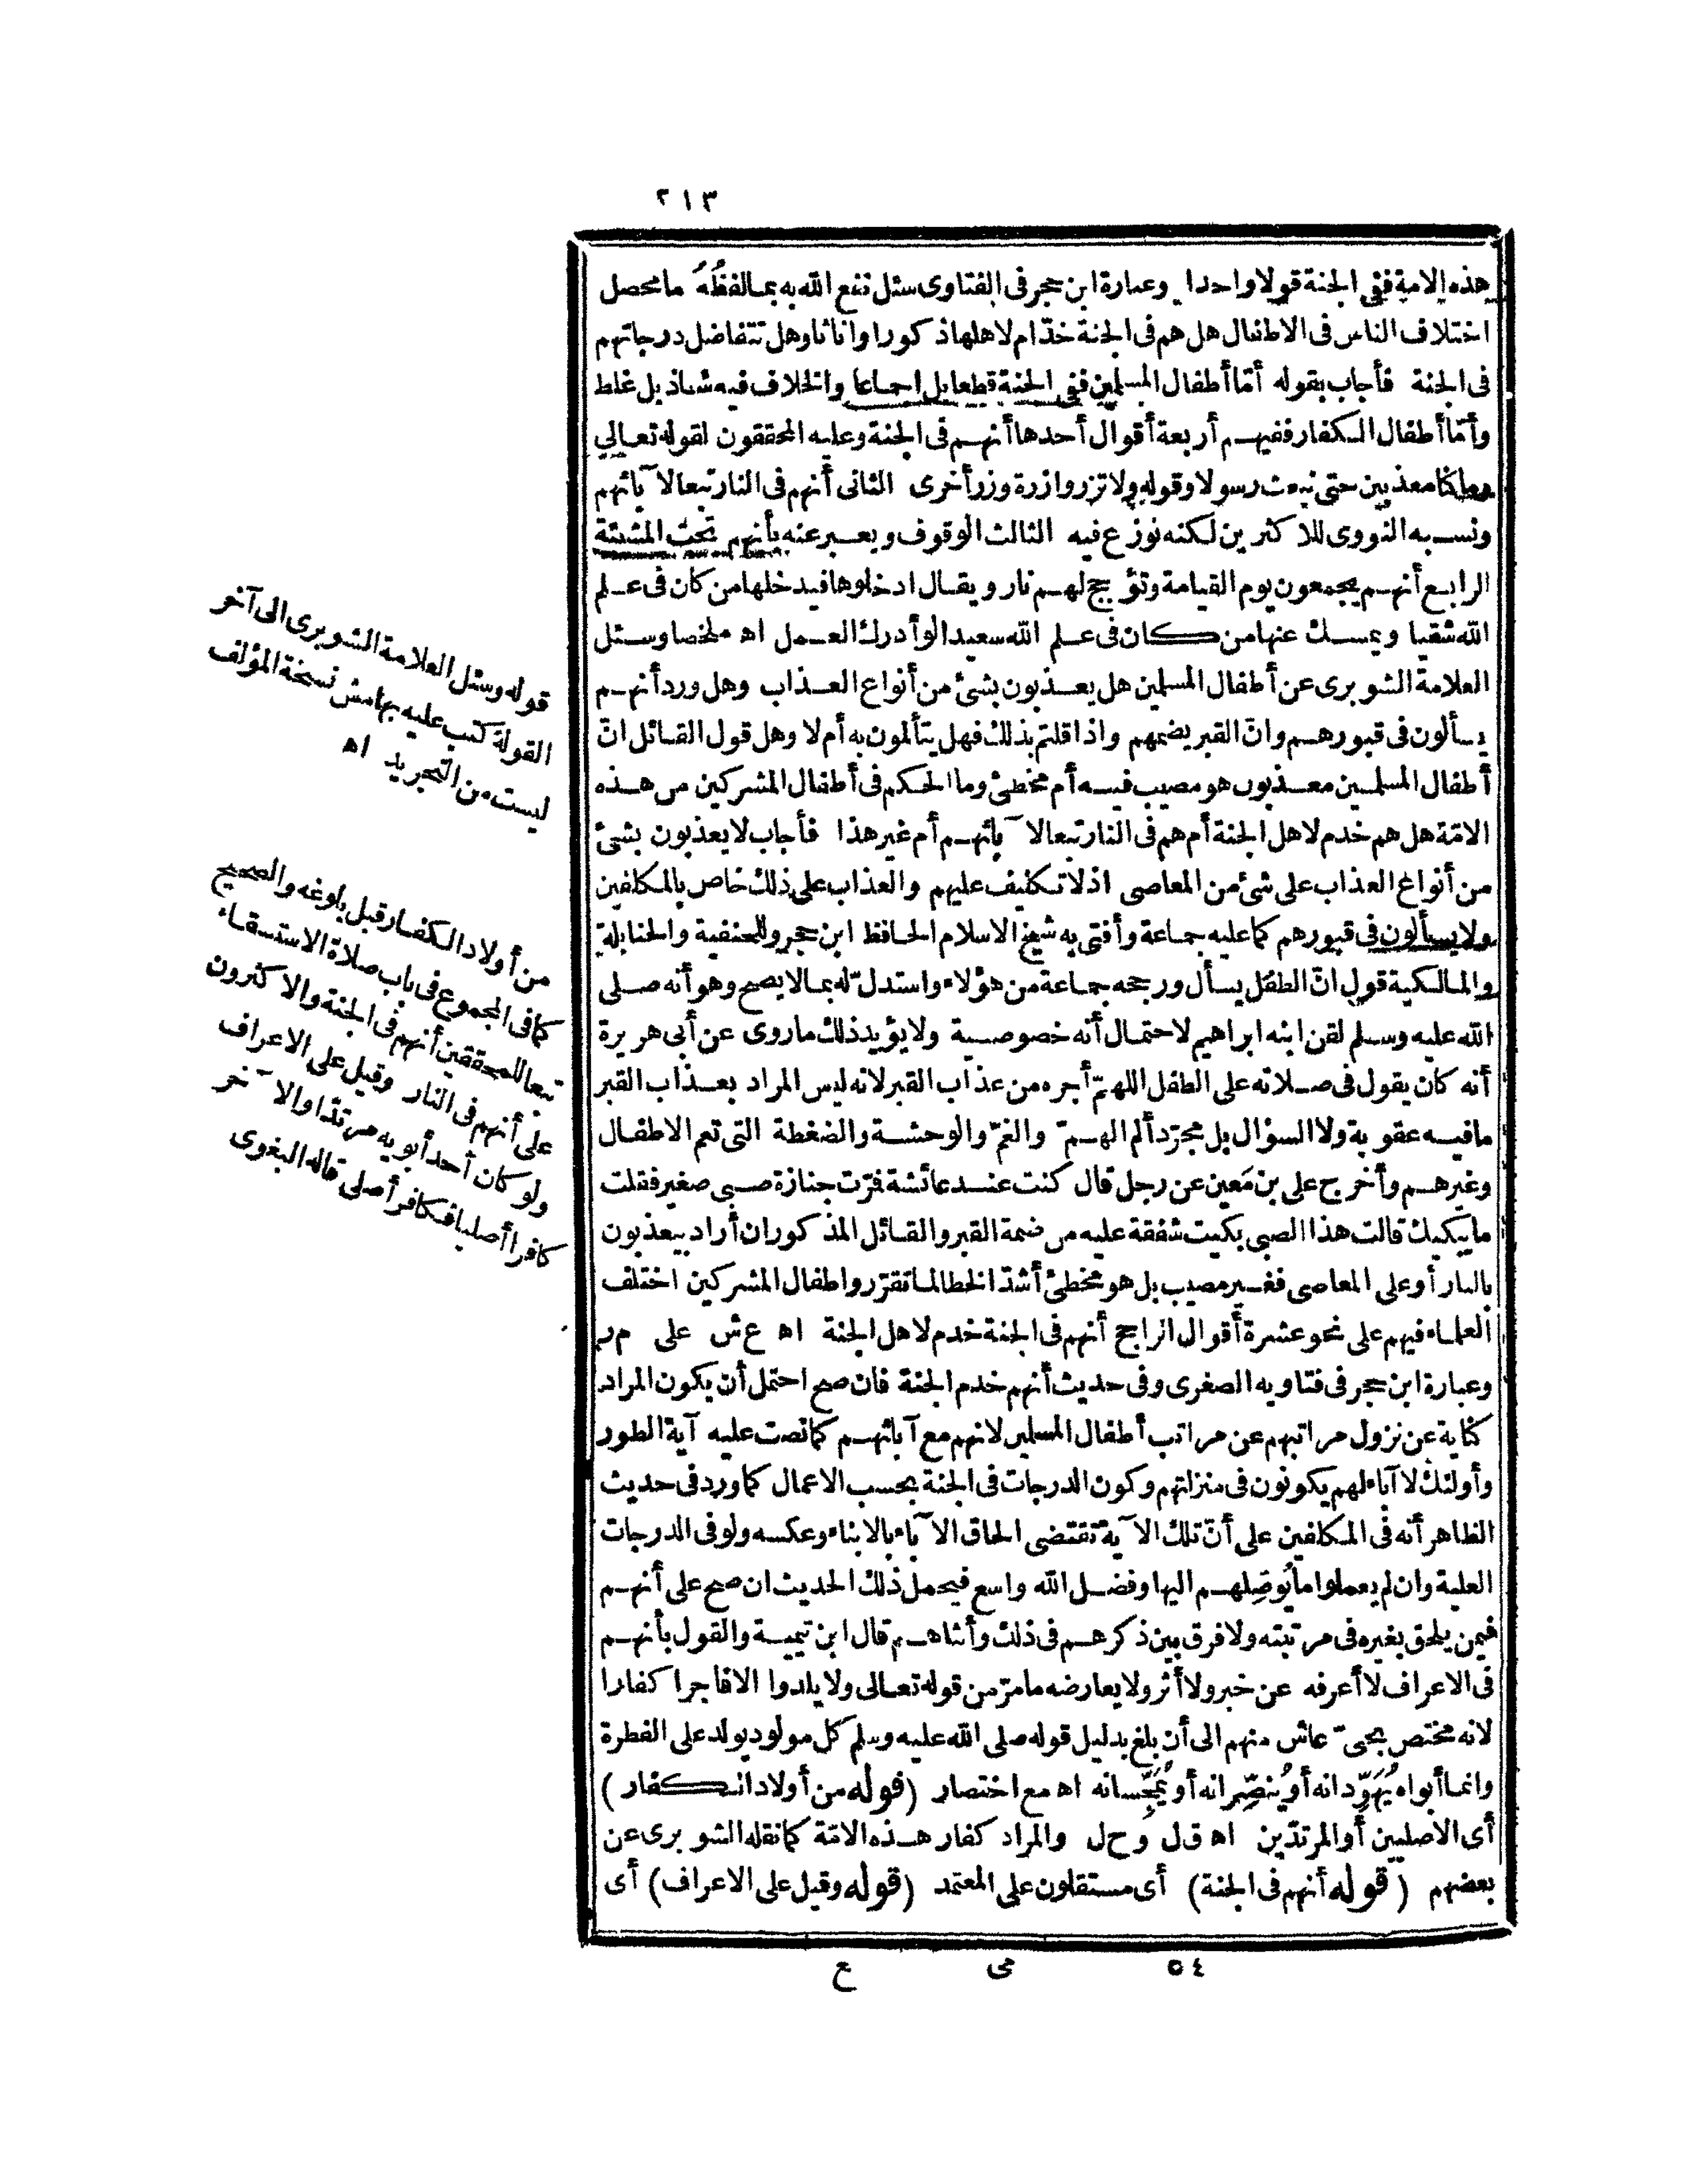 ٢١٣
هذه الامة ففى الجنة قولا واحدا وعبارة ابن حجر فى الفتاوى سئل نفع الله به بما لفظُهُ ما محصل
اختلاف الناس فى الاطفال هل هم فى الجنة خدّام لاهلها ذكورا واناثا وهل تتفاضل درجاتهم
فى الجنة فأجاب بقوله أمّا أطفال المسلمين ففى الجنة قطعا بل اجماعا والخلاف فيه شاذ بل غلط
وأمّا أطفال الكفار ففيهم أربعة أقوال أحدها أنهم فى الجنة وعليه المحققون لقوله تعالى
وما كنا معذبين حتى نبعث رسولا وقوله ولا تزر وازرة وزر أخرى الثانى أنهم فى النار تبعا لآبائهم
ونسبه النووى للاكثرين لكنه نوزع فيه الثالث الوقوف ويعبر عنه بأنهم تحت المشيئة
الرابع أنهم يجمعون يوم القيامة وتؤجج لهم نار ويقال ادخلوها فيدخلها من كان فى علم
الله شقيا ويمسك عنها من كان فى علم الله سعيدا لو أدرك العمل اه ملخصا وسئل
العلامة الشوبرى عن أطفال المسلمين هل يعذبون بشئ من أنواع العذاب وهل ورد أنهم
يسألون فى قبورهم وانّ القبر يضمهم واذا قلتم بذلك فهل يتألمون به أم لا وهل قول القائل انّ
أطفال المسلمين معذبون هو مصيب فيه أم مخطئ وما الحكم فى أطفال المشركين من هذه
الامّة هل هم خدم لاهل الجنة أم هم فى النار تبعا لآبائهم أم غير هذا فأجاب لا يعذبون بشئ
من أنواع العذاب على شئ من المعاصى اذ لا تكليف عليهم والعذاب على ذلك خاص بالمكلفين
ولا يسألون فى قبورهم كما عليه جماعة وأفتى به شيخ الاسلام الحافظ ابن حجر وللحنفية والحنابلة
والمالكية قول انّ الطفل يسأل ورجحه جماعة من هؤلاء واستدلّ له بما لا يصح وهو أنه صلى
الله عليه وسلم لقن ابنه ابراهيم لاحتمال أنه خصوصية ولا يؤيد ذلك ما روى عن أبى هريرة
أنه كان يقول فى صلاته على الطفل اللهمّ أجره من عذاب القبر لانه ليس المراد بعذاب القبر
ما فيه عقوبة ولا السؤال بل مجرّد ألم الهمّ والغمّ والوحشة والضغطة التى تعم الاطفال
وغيرهم وأخرج على بن مَعين عن رجل قال كنت عند عائشة فمرّت جنازة صبى صغير فقلت
ما يبكيك قالت هذا الصبى بكيت شفقة عليه من ضمة القبر والقائل المذكور ان أراد بيعذبون
بالنار أو على المعاصى فغير مصيب بل هو مخطئ أشدّ الخطا لما تقرّر وأطفال المشركين اختلف
العلماء فيهم على نحو عشرة أقوال الراجح أنهم فى الجنة خدم لاهل الجنة اه ع ش على م ر
وعبارة ابن حجر فى فتاويه الصغرى وفى حديث أنهم خدم الجنة فان صح احتمل أن يكون المراد
كناية عن نزول مراتبهم عن مراتب أطفال المسلمين لانهم مع آبائهم كما نصت عليه آية الطور
وأولئك لا آباء لهم يكونون فى منزلتهم وكون الدرجات فى الجنة بحسب الاعمال كما ورد فى حديث
الظاهر أنه فى المكلفين على أنّ تلك الآية تقتضى الحاق الآباء بالابناء وعكسه ولو فى الدرجات
العلية وان لم يعملوا ما يُوصِلهم اليها وفضل الله واسع فيحمل ذلك الحديث ان صح على أنهم
فيمن يلحق بغيره فى مرتبته ولا فرق بين ذكرهم فى ذلك وأنثاهم قال ابن تيمية والقول بأنهم
فى الاعراف لا أعرفه عن خبر ولا أثر ولا يعارضه ما مرّ من قوله تعالى ولا يلدوا الا فاجرا كفارا
لانه مختص بحىّ عاش منهم الى أن بلغ بدليل قوله صلى الله عليه وسلم كل مولود يولد على الفطرة
وانما أبواه يُهَوِّدانه أو يُنصِّرانه أو يُمَجِّسانه اه مع اختصار (قوله من أولاد الكفار)
أى الاصليين أو المرتدّين اه ق ل و ح ل والمراد كفار هذه الامّة كما نقله الشوبرى عن
بعضهم (قوله أنهم فى الجنة) أى مستقلون على المعتمد (قوله وقيل على الاعراف) أى
قوله وسئل العلامة الشوبرى الى آخر
القولة كتب عليه بهامش نسخة المؤلف
ليست من التجريد اه
من أولاد الكفار قبل بلوغه والصحيح
كما فى المجموع فى باب صلاة الاستسقاء
تبعا للمحققين أنهم فى الجنة والاكثرون
على أنهم فى النار وقيل على الاعراف
ولو كان أحد أبويه مرتدّا والآخر
كافرا أصليا فكافر أصلى قاله البغوى
٥٤ مى ع